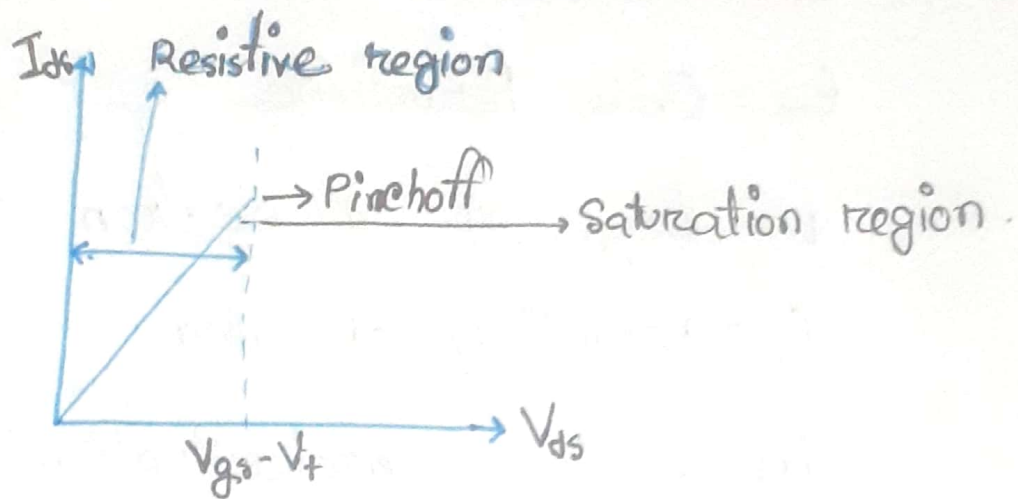 Ids
Resistive region
→ Pinchoff
Saturation region.
Vds
Vgs-Vt